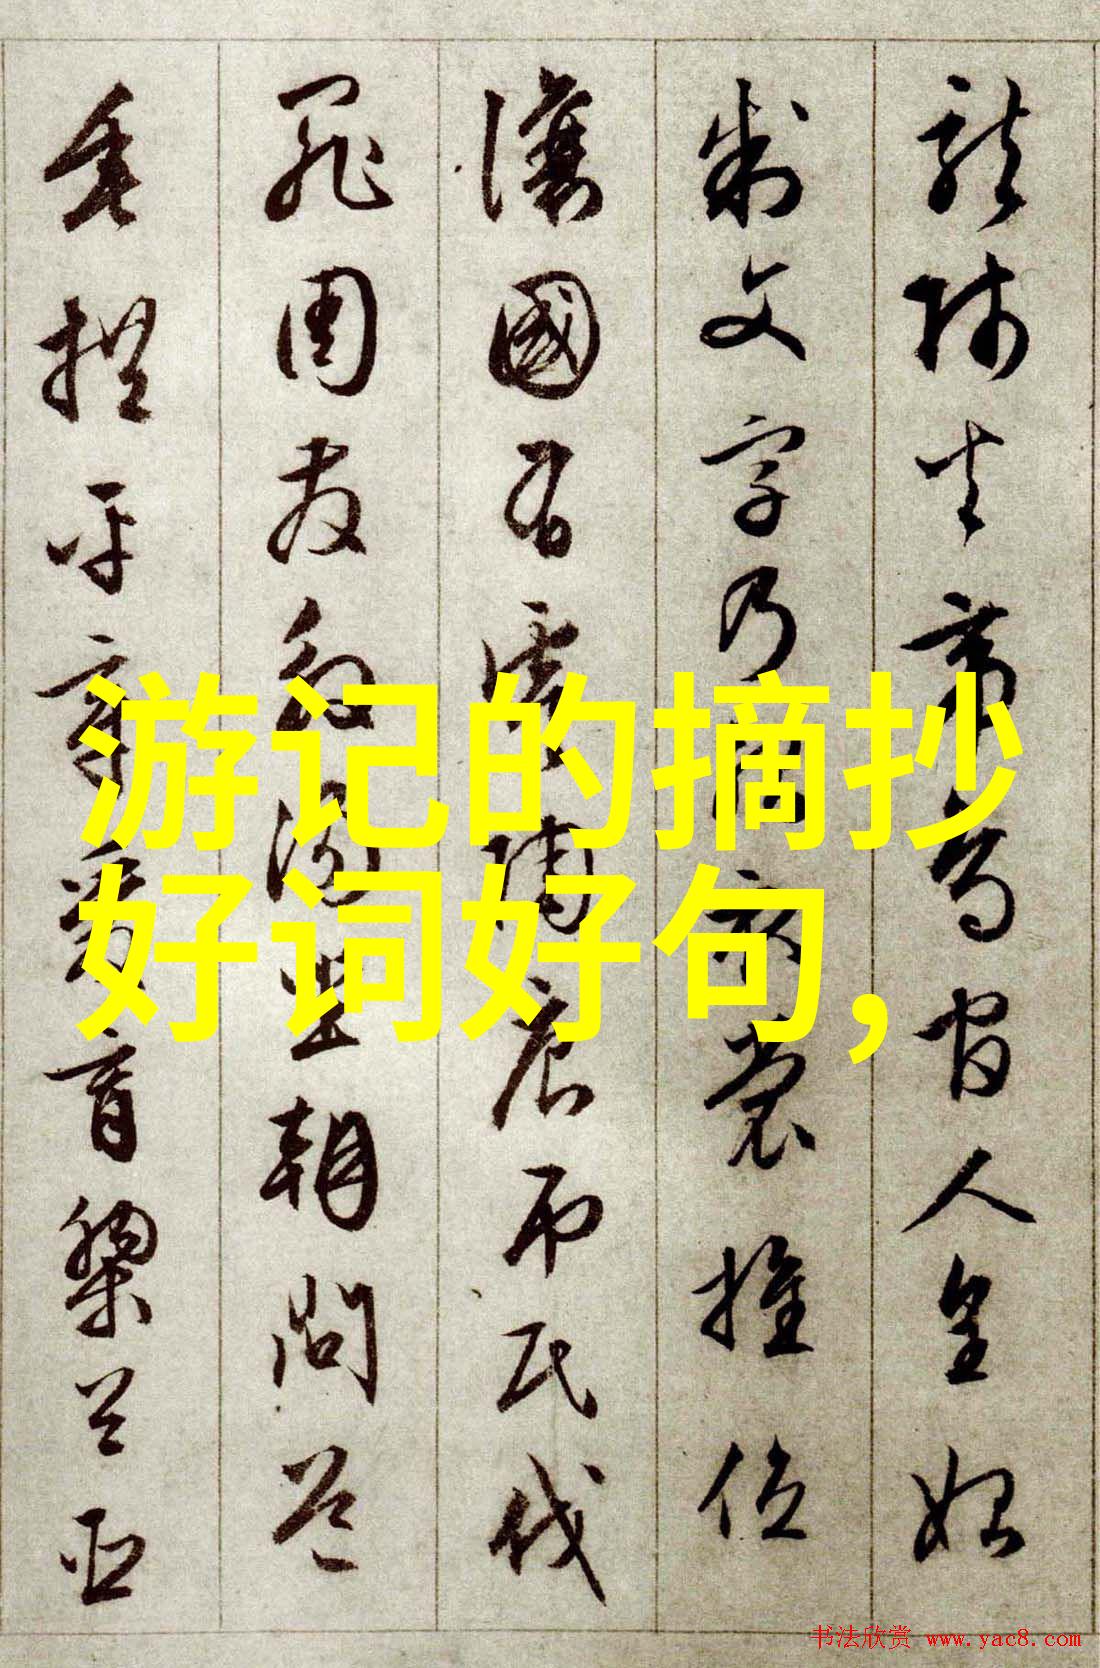 龍師火帝鳥官人皇始
制文字乃服衣裳推位
讓國有虞陶唐吊民伐
罪周發殷湯坐朝問道
垂拱平章愛育黎首臣
游记的摘抄
好词好句,
书法欣赏 www.yac8.com